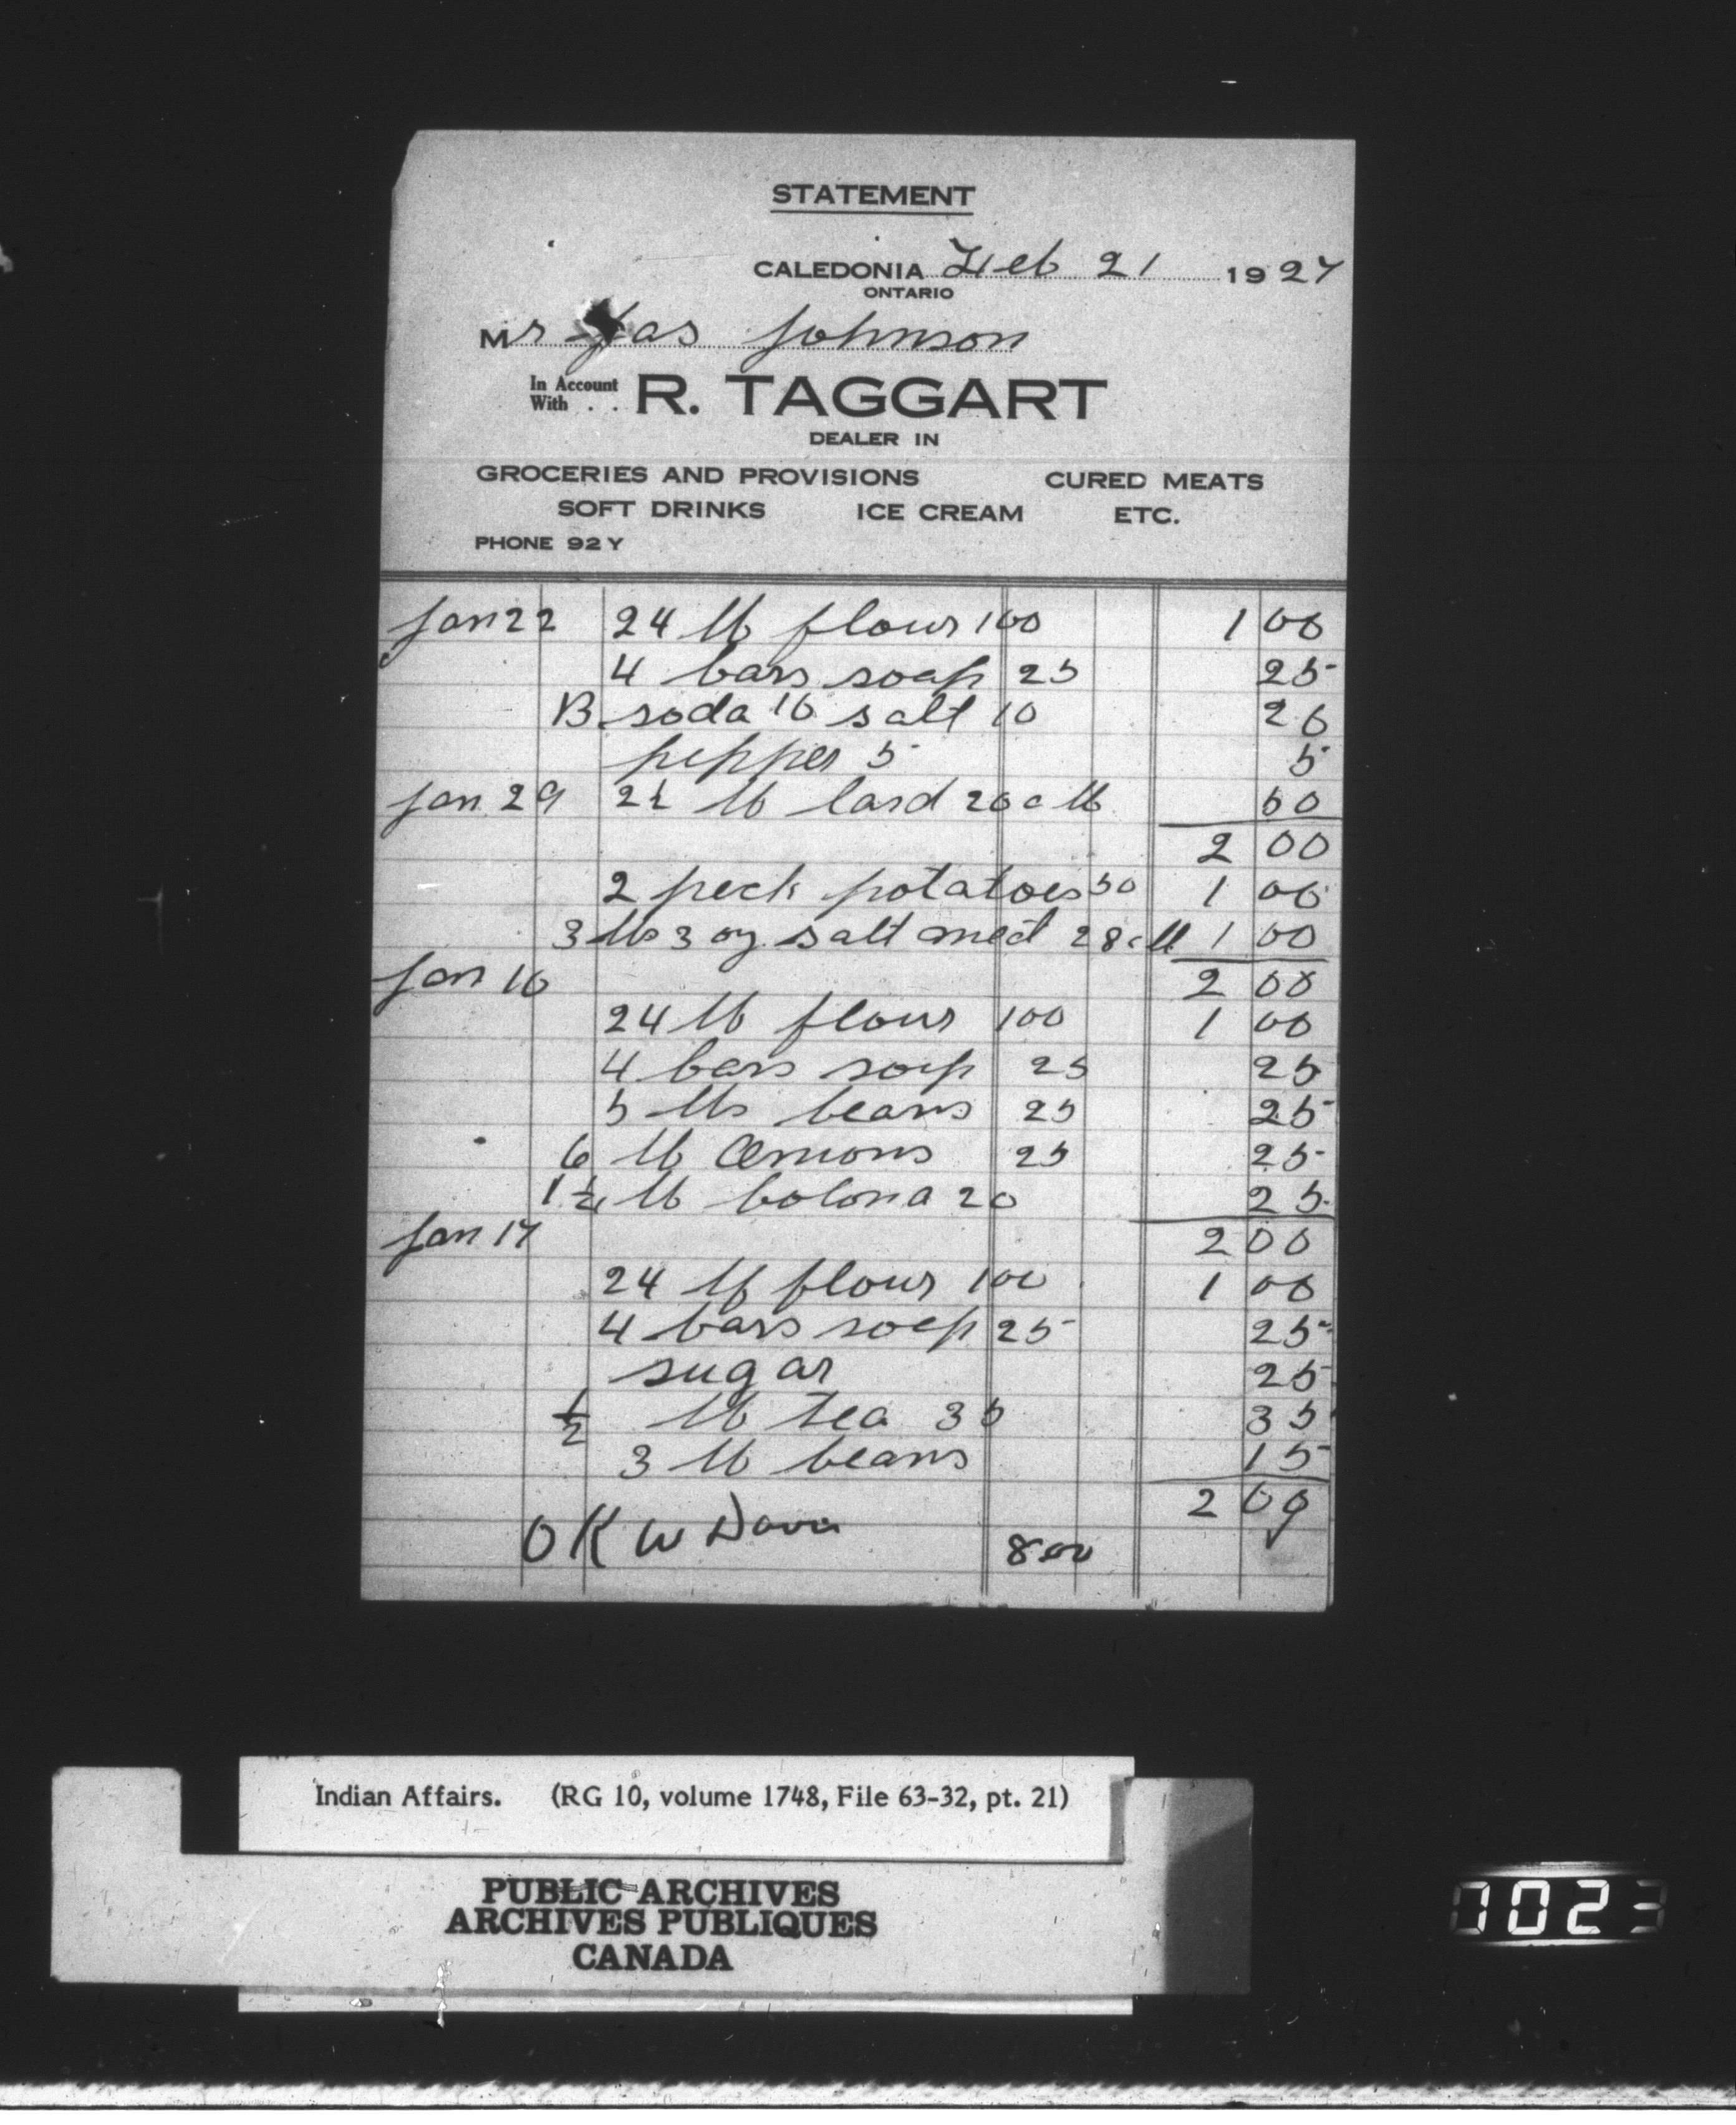 STATEMENT
CALEDONIA Feb 21 1927
ONTARIO
Mr Jas Johnson
In Account With . . R. TAGGART
DEALER IN
GROCERIES AND PROVISIONS CURED MEATS
SOFT DRINKS ICE CREAM ETC.
PHONE 92Y
Jan 22 24 lb flour 100 1 00
4 bars soap 25 25
B. soda 10 salt 10 20
pepper 5 5
Jan 29 2½ lb lard 20 c lb 50
2 00
2 peck potatoes 50 1 00
3 lbs 3 oz salt meat 28 c lb 1 00
Jan 10 2 00
24 lb flour 100 1 00
4 bars soap 25 25
5 lbs beans 25 25
6 lb Onions 25 25
1¼ lb bolona 20 25
Jan 17 2 00
24 lb flour 100 1 00
4 bars soap 25 25
sugar 25
½ lb tea 35 35
3 lb beans 15
2 00
OK W 8 00
Indian Affairs. (RG 10, volume 1748, File 63-32, pt. 21)
PUBLIC ARCHIVES
ARCHIVES PUBLIQUES
CANADA
7023